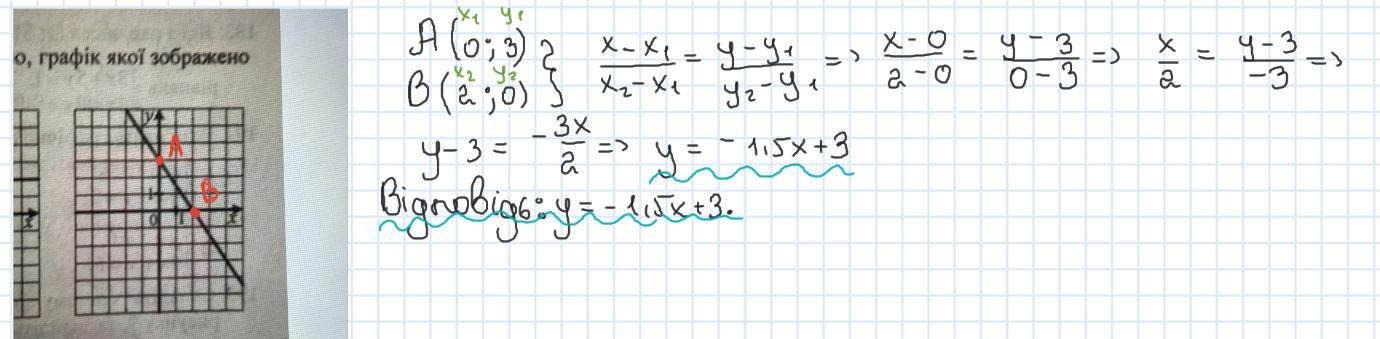 о, графік якої зображено
y
A
1
B
0
1
x
x
x₁ y₁
A(0;3)
x₂ y₂
B(2;0)
} (x-x₁)/(x₂-x₁) = (y-y₁)/(y₂-y₁) => (x-0)/(2-0) = (y-3)/(0-3) => x/2 = (y-3)/-3 =>
y-3 = -3x/2 => y = -1,5x+3
Відповідь: y = -1,5x+3.